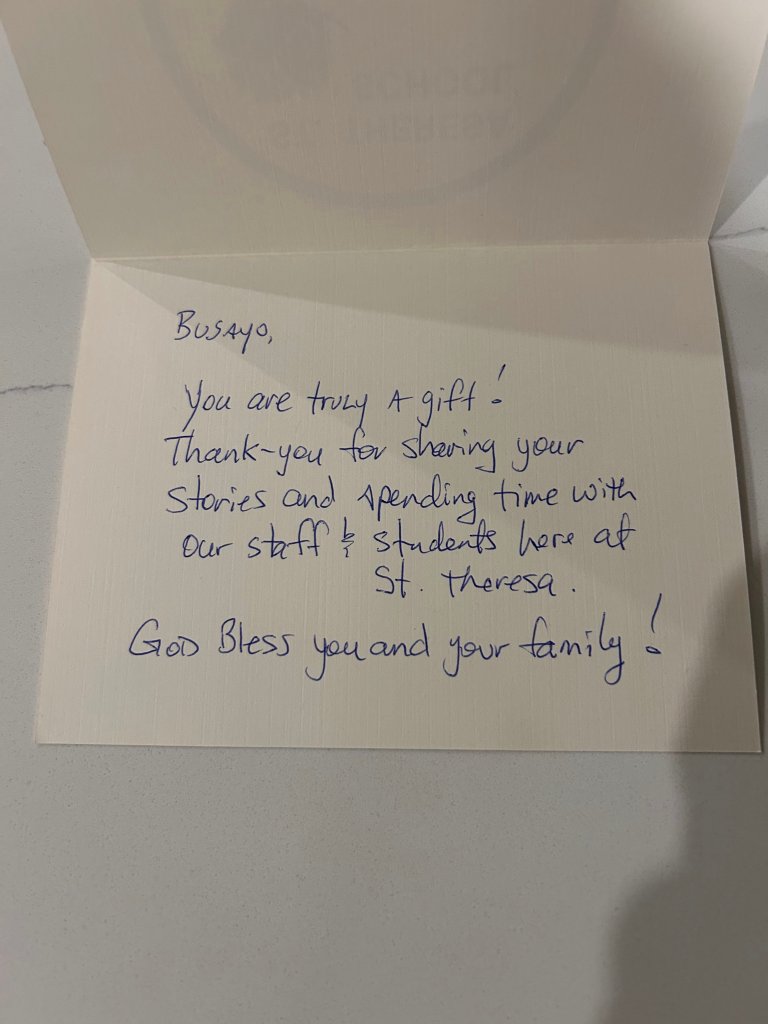 ST. THERESA
SCHOOL
Busayo,
You are truly A gift!
Thank-you for sharing your
stories and spending time with
our staff & students here at
St. Theresa.
God Bless you and your family!